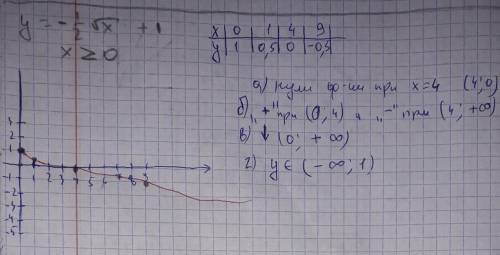 y = -1/2 √x + 1
x ≥ 0
x 0 1 4 9
y 1 0,5 0 -0,5
а) нули ф-ии при x=4 (4;0)
б) „+" при (0,4) и „-" при (4; +∞)
в) ↓ (0; +∞)
г) y ∈ (-∞; 1)
3
2
1
1 2 3 4 5 6 7 8 9
-1
-2
-3
-4
-5